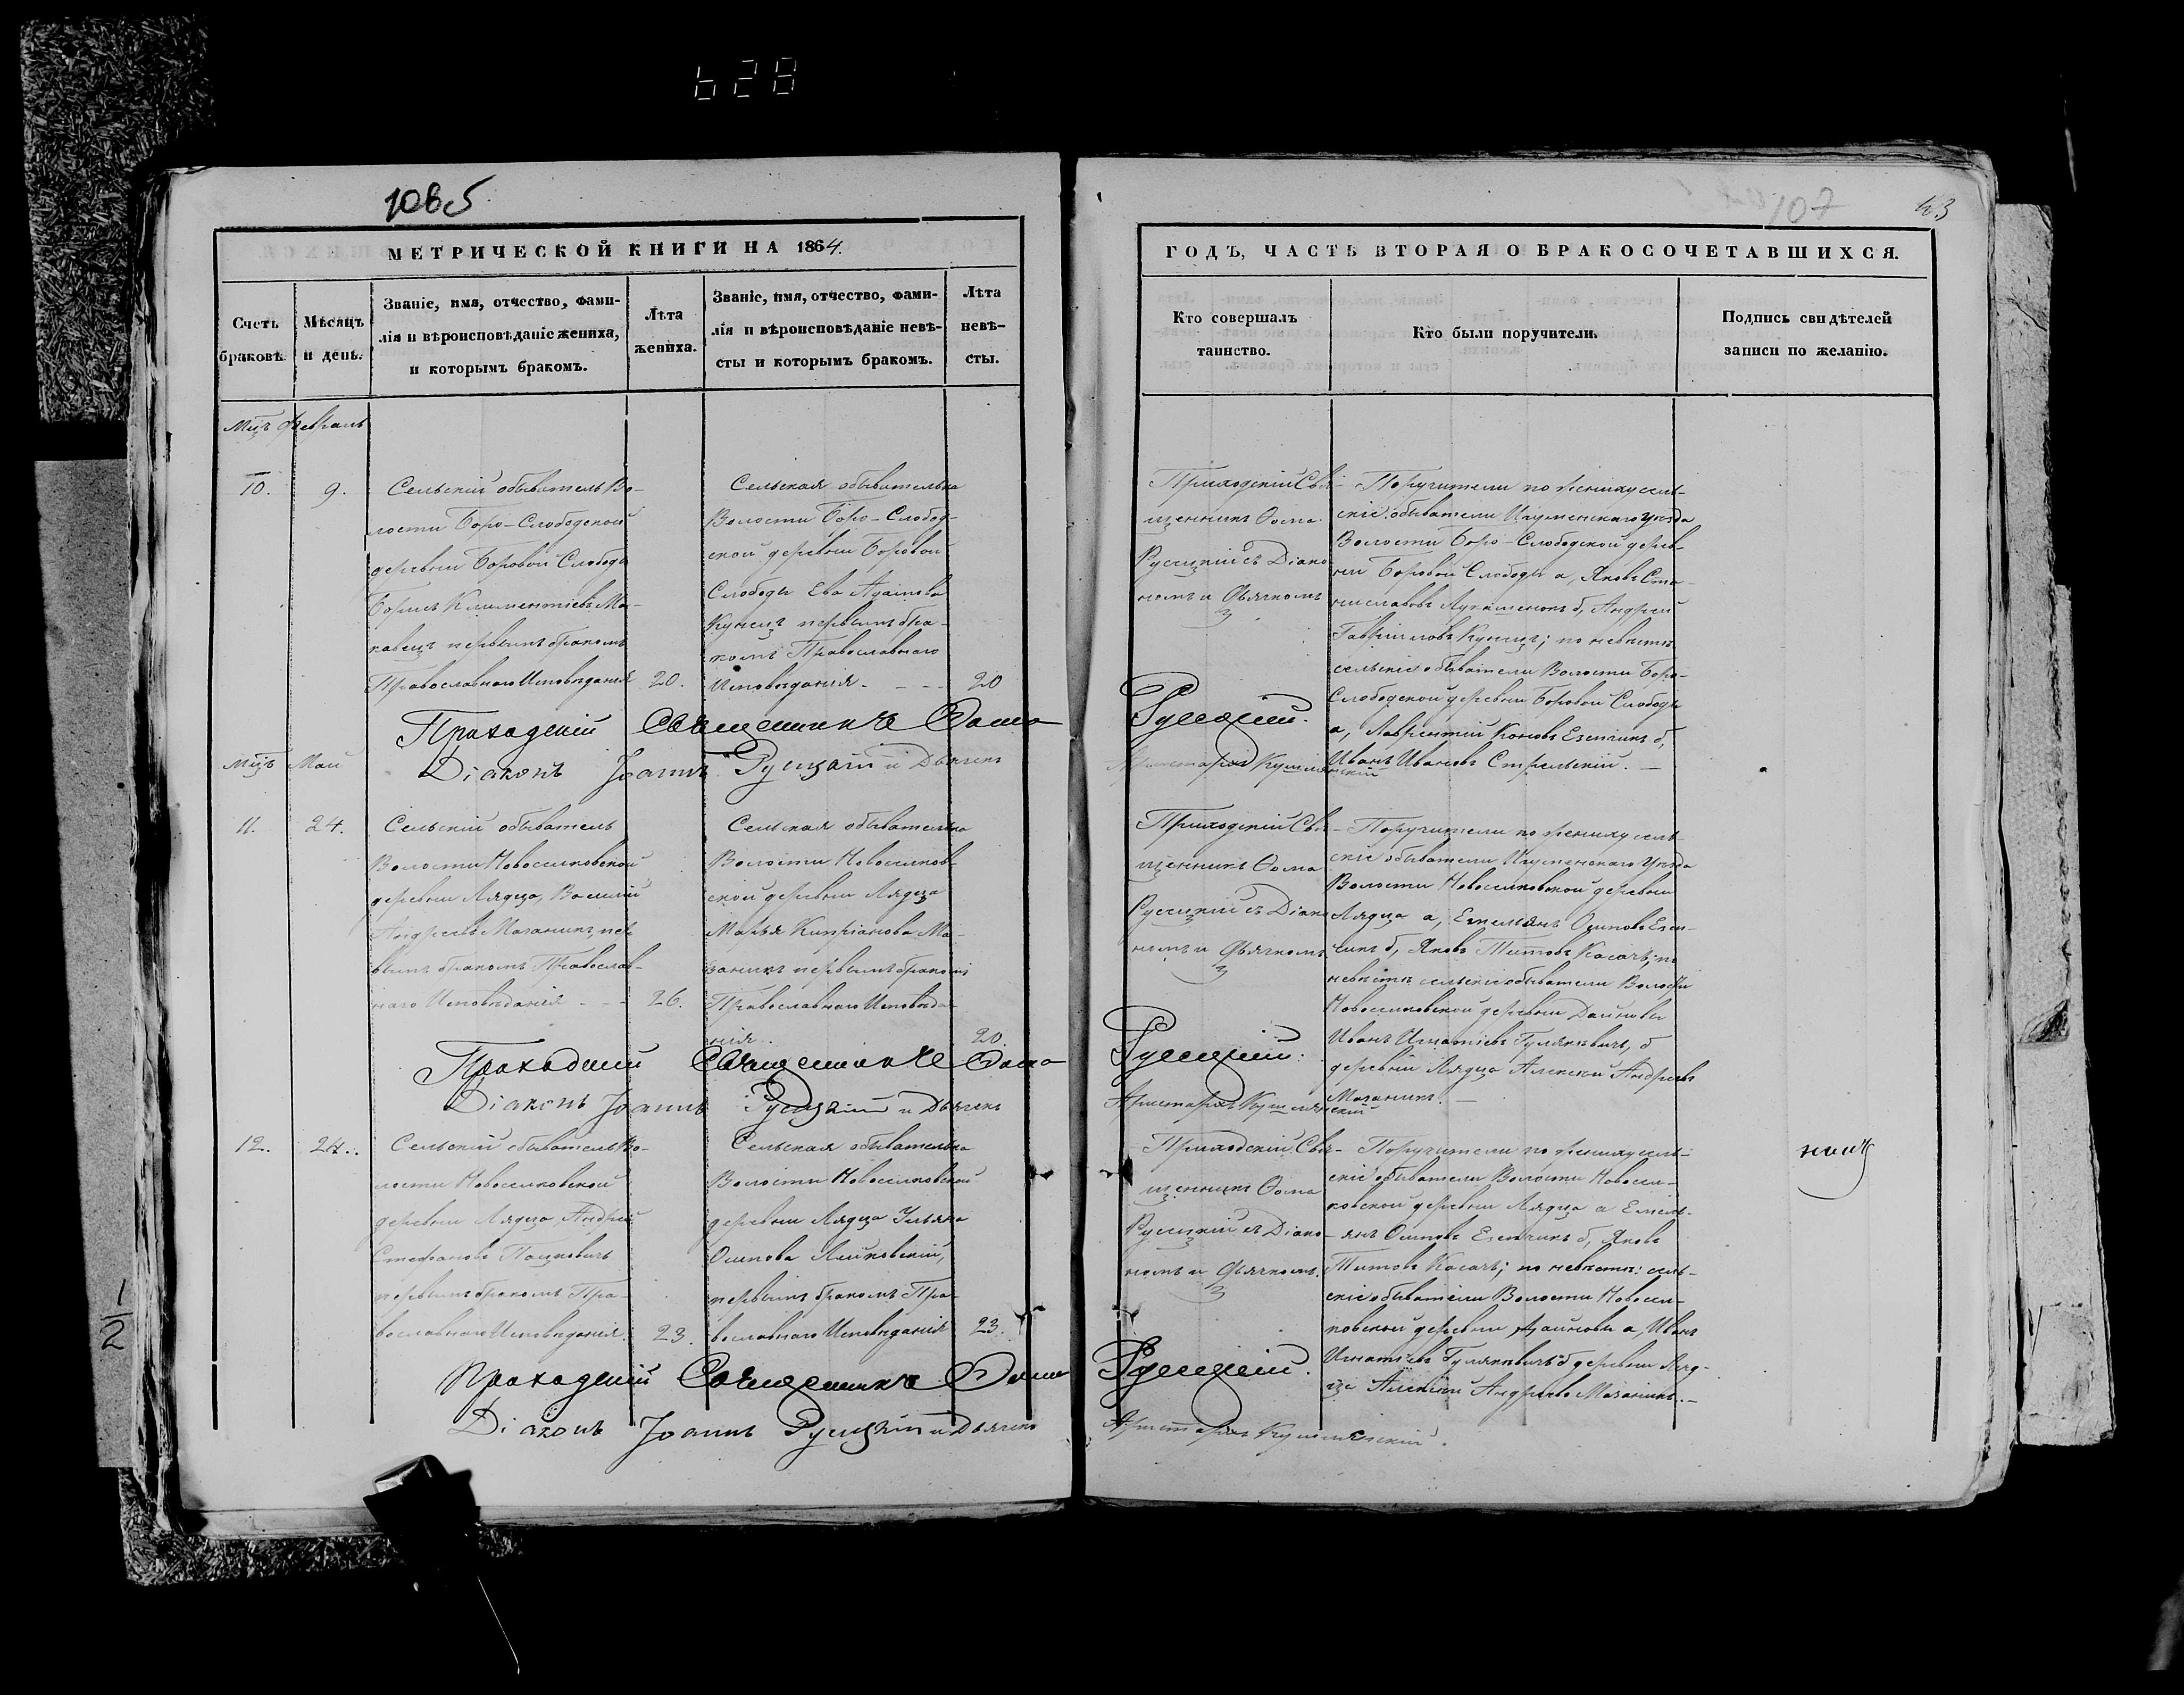 628
1085
107
43
МЕТРИЧЕСКОЙ КНИГИ НА 1864.
ГОДЪ, ЧАСТЬ ВТОРАЯ О БРАКОСОЧЕТАВШИХСЯ.
Счетъ браковъ.
Мѣсяцъ и день.
Званіе, имя, отчество, фами-
лія и вѣроисповѣданіе жениха,
и которымъ бракомъ.
Лѣта
жениха.
Званіе, имя, отчество, фами-
лія и вѣроисповѣданіе невѣ-
сты и которымъ бракомъ.
Лѣта
невѣ-
сты.
Кто совершалъ
таинство.
Кто были поручители.
Подпись свидѣтелей
записи по желанію.
Мцъ Февраль
10.
9.
Сельскій обыватель Во-
лости Боро-Слободской
деревни Боровой Слободы
Борисъ Климентіевъ Ма-
кавец первымъ бракомъ
Православнаго Исповѣданія
20.
Сельская обывателька
Волости Боро-Слобод-
ской деревни Боровой
Слободы Ева
Купец первымъ бра-
комъ Православнаго
Исповѣданія - - -
20
Приходскій Свя-
щенникъ Ѳома
Русецкій съ Діако-
номъ и Дьячкомъ
Поручители по жениху сель-
скіе обыватели Игуменскаго Уѣзда
Волости Боро-Слободской дерев-
ни Боровой Слободы а, Яковъ Ста-
ниславовъ Лукашенокъ б, Андрей
Гавріиловъ Купецъ; по невѣстѣ
сельскіе обыватели Волости Боро-
Слободской деревни Боровой Слободы
а, Лаврентій Коновъ Езепчикъ б,
Иванъ Ивановъ Стрельскій. -
Приходскій Священникъ Ѳома Русецкій.
Діаконъ Іоаннъ Русецкій и Дьячекъ Аристархъ
Мцъ Май
11.
24.
Сельскій обыватель
Волости Новоселковской
деревни Лядца, Василій
Андреевъ Мазаникъ, пер-
вымъ бракомъ Православ-
наго Исповѣданія - - -
26.
Сельская обывателька
Волости Новоселков-
ской деревни Лядца
Марья Кипріанова Ма-
заникъ первымъ бракомъ
Православнаго Исповѣда-
нія.
20.
Приходскій Свя-
щенникъ Ѳома
Русецкій съ Діако-
номъ и Дьячкомъ
Поручители по жениху сель-
скіе обыватели Игуменскаго Уѣзда
Волости Новоселковской деревни
Лядца а, Емельянъ Осиповъ Езеп-
чикъ б, Яковъ Титовъ Касачъ; по
невѣстѣ сельскіе обыватели Волости
Новоселковской деревни Дайновы
Иванъ Игнатіевъ Гуляквичъ, б
деревни Лядца Алексей Андреевъ
Мазаникъ. -
Приходскій Священникъ Ѳома Русецкій.
Діаконъ Іоаннъ Русецкій и Дьячекъ Аристархъ
12.
24.
Сельскій обыватель Во-
лости Новоселковской
деревни Лядца, Андрей
Стефановъ Пацкевичъ
первымъ бракомъ Пра-
вославнаго Исповѣданія.
23.
Сельская обывателька
Волости Новоселковской
деревни Лядца Ульяна
Осипова
первымъ бракомъ Пра-
вославнаго Исповѣданія
23.
Приходскій Свя-
щенникъ Ѳома
Русецкій съ Діако-
номъ и Дьячкомъ.
Поручители по жениху сель-
скіе обыватели Волости Новосел-
ковской деревни Лядца а Емель-
янъ Осиповъ Езепчикъ б, Яковъ
Титовъ Касачъ; по невѣстѣ: сель-
скіе обыватели Волости Новосел-
ковской деревни Дайновы а, Иванъ
Игнатіевъ Гуляквичъ б деревни Ляд-
ца Алексей Андреевъ Мазаникъ. -
Приходскій Священникъ Ѳома Русецкій.
Діаконъ Іоаннъ Русецкій и Дьячекъ Аристархъ
1/2